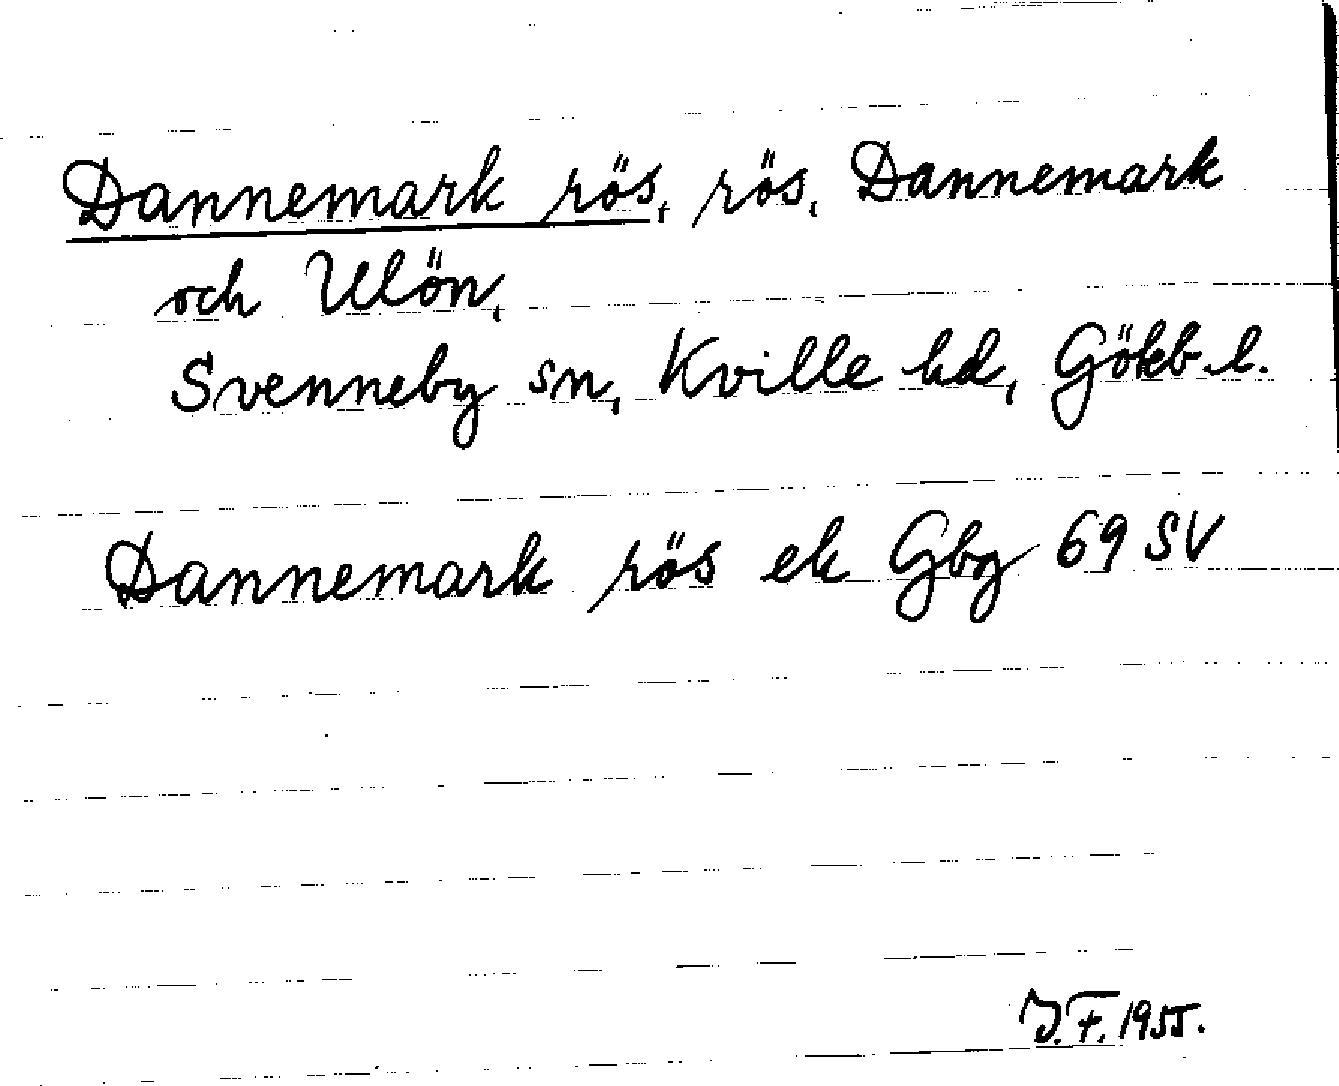 Dannemark rös, rös, Dannemark
och Ulön,
Svenneby sn, Kville hd, Gökb. l.
Dannemark rös ek Gbg 69 SV
J.F. 1955.